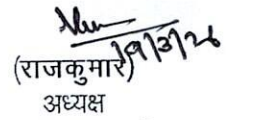 19/3/26
(राजकुमार)
अध्यक्ष